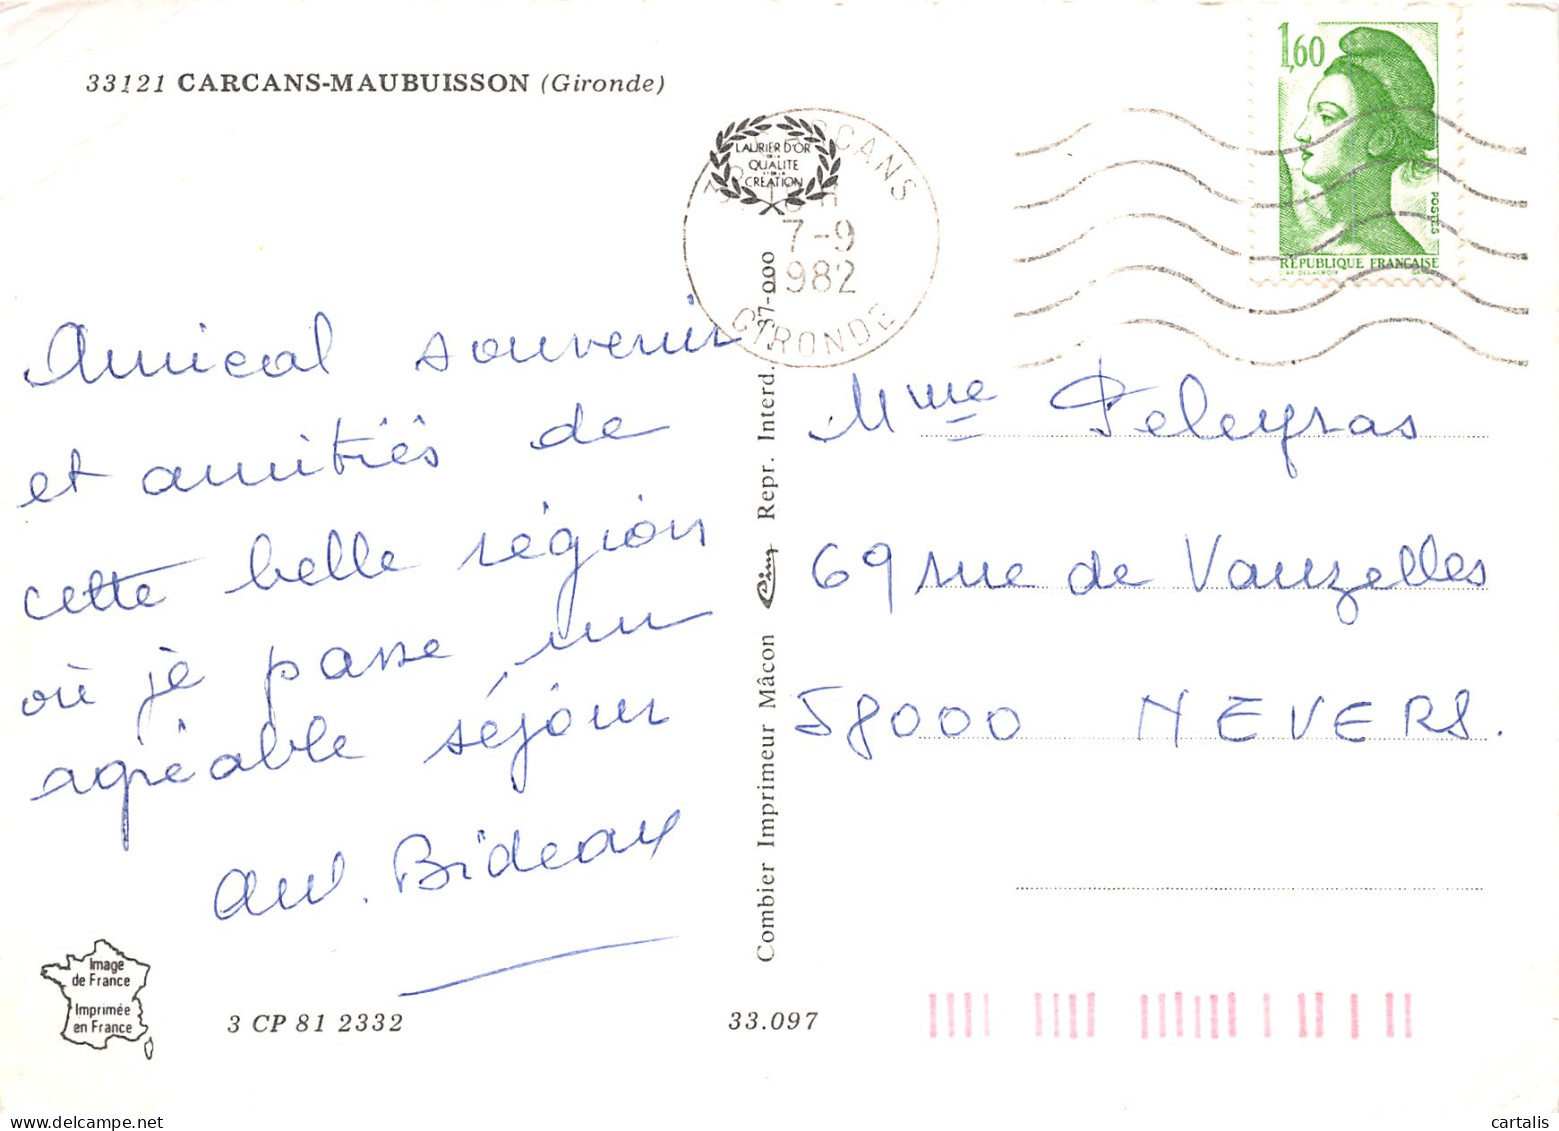 33121 CARCANS-MAUBUISSON (Gironde)
1,60
POSTES
RÉPUBLIQUE FRANÇAISE
LAURIER D'OR
DE LA
QUALITE
ET DE LA
CREATION
CARCANS
7-9
1982
GIRONDE
Amical souvenir
et amitiés de
cette belle région
où je passe un
agréable séjour
Bideaux
Mme Peleyras
69 rue de Vauzelles
58000 NEVERS.
Combier Imprimeur Mâcon Cim Repr. Interd. 37-000
Image
de France
Imprimée
en France
3 CP 81 2332
33.097
cartalis